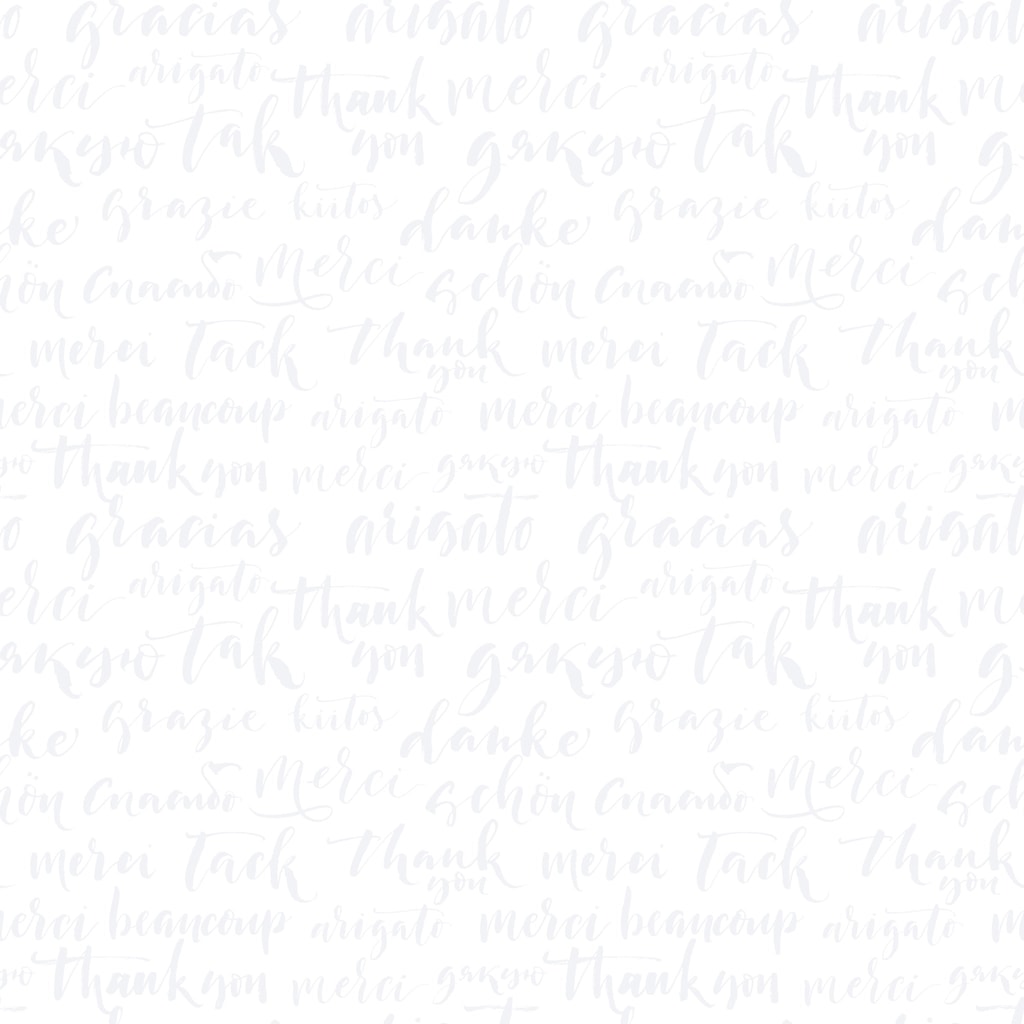 gracias arigato gracias arigat
erci arigato thank merci arigato thank m
якую tak you дякую tak you
ke grazie kiitos danke grazie kiitos dan
ön Спасибо merci schön Спасибо merci sch
merci Tack thank you merci Tack thank you
erci beaucoup arigato merci beaucoup arigato m
thank you merci дякую thank you merci дяку
gracias arigato gracias arigat
erci arigato thank merci arigato thank m
якую tak you дякую tak you
ke grazie kiitos danke grazie kiitos dan
ön Спасибо merci schön Спасибо merci sch
merci Tack thank you merci Tack thank you
erci beaucoup arigato merci beaucoup arigato m
thank you merci дякую thank you merci дяку